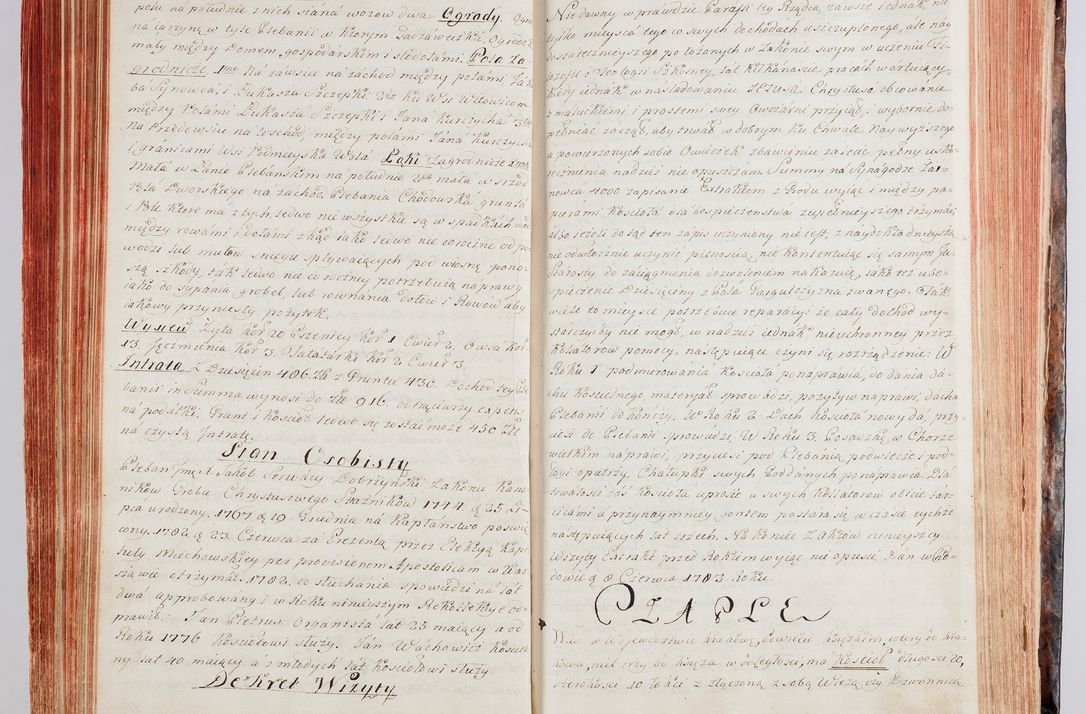 polu na południe z nich siana wozow dwa Ogrody.
na iarzynę w tyle Plebanii w ktorym
mały między Domem gospodarskim i stodołami: Pola Za
grodnicze. 1mo Ka zawsze na zachod między polami
ba Synowca, i Łukasza Szczepki. 2do Ku Wsi Witowicom
między Polami Łukasza Szczepki i Jana Kurczycha
na wschod, między polami Jana Kurczycha
i granicami Wsi Wola Łąki Zagrodnicze
mała w Łanie Plebańskim na południe 2da mała w srzod
Pola Dworskiego na zachod. Plebania Chodowska grunta
i Role ktore ma z tych ledwo nie wszystkie są w spadkach
między rowami i dołami zkąd iako ledwo nie corocznie od po
wodzi lub mułow sniegu spływaiących pod wiosnę pono
szą szkody, tak ledwo nie corocznie potrzebuią naprawy
iako do sypania grobel, lub rownania dołow i Rowow aby
iakowy przyniosły pożytek.
Wysiew Żyta kor 20 Pszenicy kor 1 Cwier 2, Owsa kor
13 Jęczmienia kor 3. Tatarki kor 2 Cwier 3.
Intrata z Dziesięcin 486. Zł z Gruntu 430. Dochod tey Ple
banii in summa wynosi do Zł 916. odtrąciwszy
na podatki, Grunt i Kosciół ledwo się zostać może 450 Zł
na czystą Intratę.
Stan Osobisty
Pleban Jmć X. Jakob Serwacy Dobrzyński Zakonu Kano
nikow Grobu Chrystusowego Strażnikow 1744 d 25 Li
pca urodzony. 1767 d 19 Grudnia na Kapłaństwo poswię
cony. 1782 d 23 Czerwca za Prezentą przez Elekcyą Kapi
tuły Miechowskiey per provisionem Apostolicam w War
szawie otrzymał. 1782. do słuchania spowiedzi na lat
dwa approbowany i w Roku ninieyszym Rekollekcye od
prawił. Jan Pietrus Organista lat 25 maiący a od
Roku 1776 Kosciołowi służy. Jan Wachowicz Koscieł
ny lat 40 maiący a z młodych lat Kosciołowi służy.
Dekret Wizyty
Niedawny w prawdzie Parafii tey Rządca, zawsze iednak nie
tylko mieysca tego w swych dochodach uszczuplonego, ale nay
dostatecznieyszego położonych w Zakonie swym w uczeniu Fi
lozofii i Teologii Szkolney lat kilkanascie pracach wart
kiedy iednak w nasladowaniu JEZUSA Chrystusa obcowanie
z maluckiemi i prostemi swey Owczarni przyiął, i wybornie do
pełniać zaczął, aby trwał w dobrym ku Chwale Naywyższego
a powierzonych sobie Owieczek zbawieniu zaięciu pełny usku
tecznienia nadziei nie opuszczam. Summy na Synagodze Żar
nowca 4000 zapisaney Extraktem z Grodu wyiąć i między pa
pierami Koscioła dla bespieczenstwa zupełnieyszego trzymać,
albo ieżeli dotąd ten zapis uczyniony nie iest, z naydokładnieyszą
nie odwłocznie uczynić pilnoscią, nie kontentuiąc się samym
Starosty do zaciągnienia dozwoleniem nakazuię, iako też ube
spieczenie Dziesięciny z Pola Gargulczyzna zwanego. Tak
wiele to mieysce potrzebuie reparacyi: że cały dochod wy
starczyćby nie mogł, w nadziei iednak nieuchronney przez
Kollatorow pomocy, następuiące czyni się rozrządzenie: W
Roku 1 podmurowania Koscioła ponaprawia, do dania da
chu Koscielnego materyał sprowadzi, poszycie naprawi, dachu
Plebanii dokończy. W Roku 2. Dach Koscioła nowy da, przy
ciesi do Plebanii sprowadzi. W Roku 3. Posadzkę w Chorze
wielkim naprawi, przyciesi pod Plebanią podwiecze i pod
łogi opatrzy. Chałupki swych Grodzonych ponaprawia. Dla
trwałosci zas Koscioła uprosić u swych Kollatorow obicie tar
cicami a przynaymniey gontem postara się w czasie tychże
następuiących lat trzech. Na koniec z Aktow ninieyszey
Wizyty Extrakt przed Rokiem wyiąć nie opuści. Dan w Cho
dowie d 8 Czerwca 1783 Roku.
PZAPLE
Wies w Woiewodztwie Krakow, Powiecie Xiązkim, cztery od Kra
kowa, mil trzy od Xiąża w odległosci, ma Kosciół długosci 20,
szerokosci 10 łokci z złączoną z sobą Wieżą czy Dzwonnicą